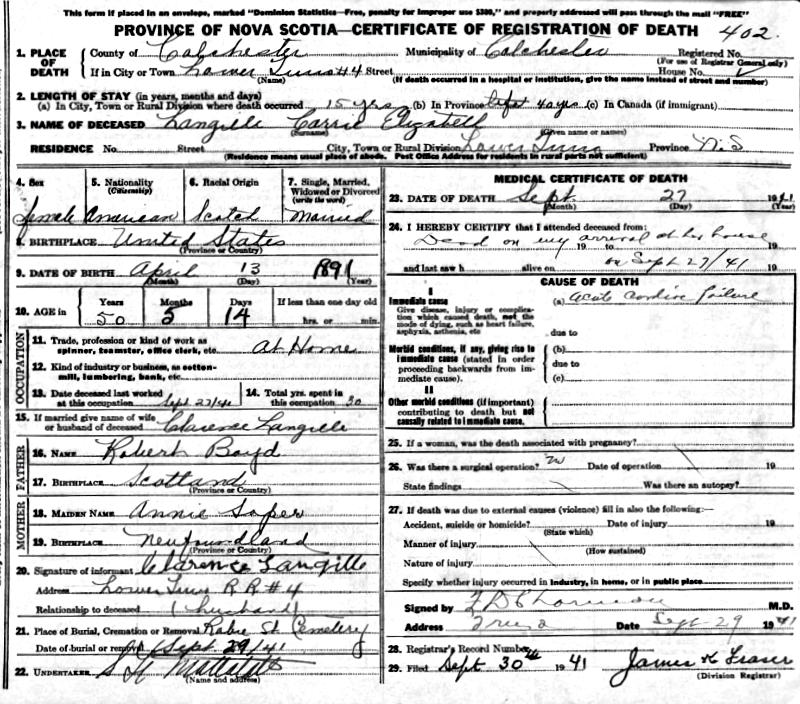 This form if placed in an envelope, marked "Dominion Statistics—Free, penalty for improper use $300," and properly addressed will pass through the mail "FREE"
PROVINCE OF NOVA SCOTIA—CERTIFICATE OF REGISTRATION OF DEATH 402.
1. PLACE OF DEATH
County of Colchester Municipality of Colchester Registered No.
(For use of Registrar General only)
If in City or Town Lower Truro #4 Street House No.
(Name) (If death occurred in a hospital or institution, give the name instead of street and number)
2. LENGTH OF STAY (in years, months and days)
(a) In City, Town or Rural Division where death occurred 15 yrs (b) In Province 40 yrs (c) In Canada (if immigrant)
3. NAME OF DECEASED Langille Carrie Elizabeth
(Given name or names)
RESIDENCE No. Street City, Town or Rural Division Lower Truro Province N.S
(Residence means usual place of abode. Post Office Address for residents in rural parts not sufficient)
4. Sex 5. Nationality (Citizenship) 6. Racial Origin 7. Single, Married, Widowed or Divorced (write the word)
female American Scotch Married
8. BIRTHPLACE United States
(Province or Country)
9. DATE OF BIRTH April 13 1891
(Month) (Day) (Year)
10. AGE in Years Months Days If less than one day old
50 5 14 hrs. or min.
OCCUPATION
11. Trade, profession or kind of work as spinner, teamster, office clerk, etc. At Home
12. Kind of industry or business, as cotton-mill, lumbering, bank, etc.
13. Date deceased last worked at this occupation Sept 27/41 14. Total yrs. spent in this occupation 30
15. If married give name of wife or husband of deceased Clarence Langille
FATHER
16. NAME Robert Boyd
17. BIRTHPLACE Scotland
(Province or Country)
MOTHER
18. MAIDEN NAME Annie Soper
19. BIRTHPLACE Newfoundland
(Province or Country)
20. Signature of informant Clarence Langille
Address Lower Truro R R #4
Relationship to deceased (husband)
21. Place of Burial, Cremation or Removal Robie St. Cemetery
Date of burial or removal Sept 29/41
22. UNDERTAKER
(Name and address)
MEDICAL CERTIFICATE OF DEATH
23. DATE OF DEATH Sept. 27 1941
(Month) (Day) (Year)
24. I HEREBY CERTIFY that I attended deceased from:
Dead on my arrival at her house
19 to 19
and last saw h alive on on Sept 27/41 19
CAUSE OF DEATH
I
Immediate cause (a) Acute cardiac failure
Give disease, injury or complication which caused death, not the mode of dying, such as heart failure, asphyxia, asthenia, etc
due to
Morbid conditions, if any, giving rise to immediate cause (stated in order proceeding backwards from immediate cause).
(b)
due to
(c)
II
Other morbid conditions (if important) contributing to death but not causally related to immediate cause.
25. If a woman, was the death associated with pregnancy?
26. Was there a surgical operation? no Date of operation 19
State findings Was there an autopsy?
27. If death was due to external causes (violence) fill in also the following:—
Accident, suicide or homicide? Date of injury 19
(State which)
Manner of injury
(How sustained)
Nature of injury
Specify whether injury occurred in industry, in home, or in public place
Signed by M.D.
Address Truro Date Sept 29 1941
28. Registrar's Record Number
29. Filed Sept 30th 1941 James K Fraser
(Division Registrar)